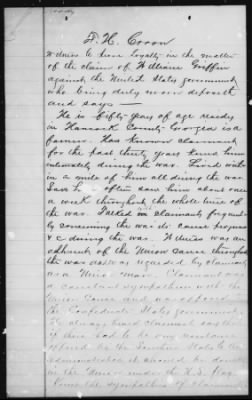 F. H. Coron
Witness to prove Loyalty in the matter
of the claim of William Griffin
against the United States government
who being duly sworn deposeth
and says —
He is fifty years of age resides
in Hancock County Georgia is a
farmer. Has known claimant
for the past thirty years knew him
intimately during the war. Lived within
in a mile of him all during the war.
Saw him often saw him about once
a week throughout the whole time of
the war. Talked with claimant frequent
ly concerning the war its cause progress
& c during the war. Witness was an
adherent of the Union cause throughout
the war and so regarded by claimant
as a Union man. Claimant was
a constant sympathizer with the
Union Cause and was opposed to
the Confederate States government.
He always heard claimant say that
if there had to be any resistance
offered by the Southern States to the
administration it should be done
in the Union under the U.S. flag.
Knows the sympathies of claimant